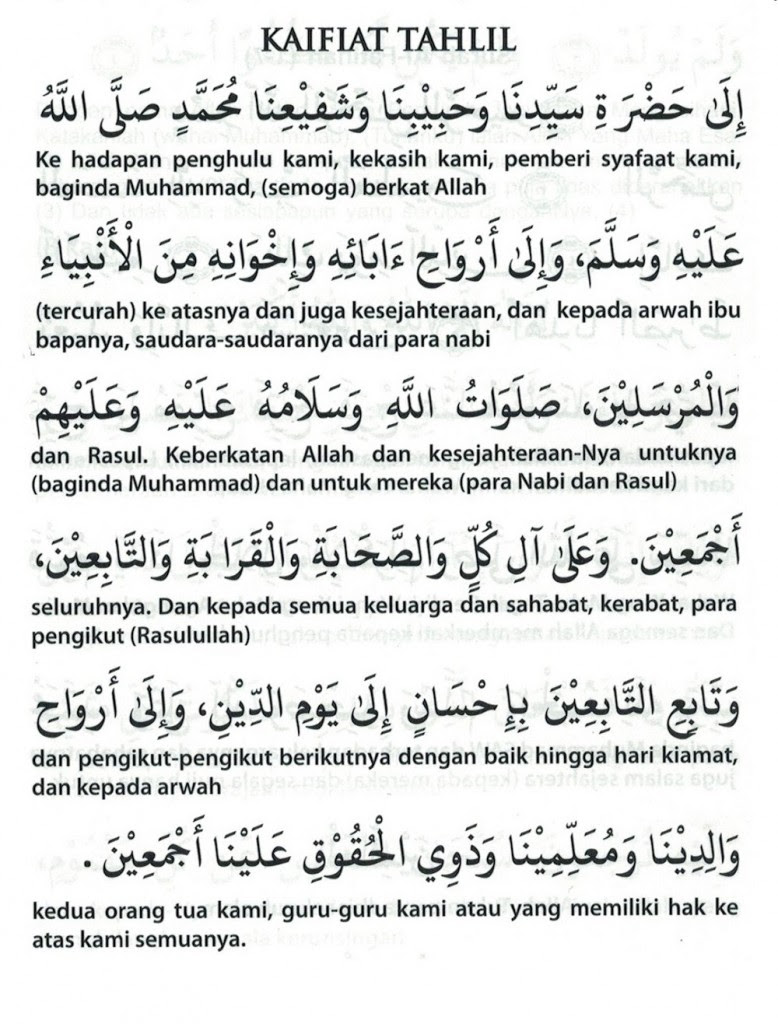 KAIFIAT TAHLIL
إِلَىٰ حَضْرَةِ سَيِّدِنَا وَحَبِيْبِنَا وَشَفِيْعِنَا مُحَمَّدٍ صَلَّى اللَّهُ
Ke hadapan penghulu kami, kekasih kami, pemberi syafaat kami,
baginda Muhammad, (semoga) berkat Allah
عَلَيْهِ وَسَلَّمَ، وَإِلَىٰ أَرْوَاحِ ءَابَائِهِ وَإِخْوَانِهِ مِنَ الْأَنْبِيَاءِ
(tercurah) ke atasnya dan juga kesejahteraan, dan kepada arwah ibu
bapanya, saudara-saudaranya dari para nabi
وَالْمُرْسَلِيْنَ، صَلَوَاتُ اللَّهِ وَسَلَامُهُ عَلَيْهِ وَعَلَيْهِمْ
dan Rasul. Keberkatan Allah dan kesejahteraan-Nya untuknya
(baginda Muhammad) dan untuk mereka (para Nabi dan Rasul)
أَجْمَعِيْنَ. وَعَلَىٰ آلِ كُلٍّ وَالصَّحَابَةِ وَالْقَرَابَةِ وَالتَّابِعِيْنَ،
seluruhnya. Dan kepada semua keluarga dan sahabat, kerabat, para
pengikut (Rasulullah)
وَتَابِعِ التَّابِعِيْنَ بِإِحْسَانٍ إِلَىٰ يَوْمِ الدِّيْنِ، وَإِلَىٰ أَرْوَاحِ
dan pengikut-pengikut berikutnya dengan baik hingga hari kiamat,
dan kepada arwah
وَالِدِيْنَا وَمُعَلِّمِيْنَا وَذَوِي الْحُقُوْقِ عَلَيْنَا أَجْمَعِيْنَ .
kedua orang tua kami, guru-guru kami atau yang memiliki hak ke
atas kami semuanya.